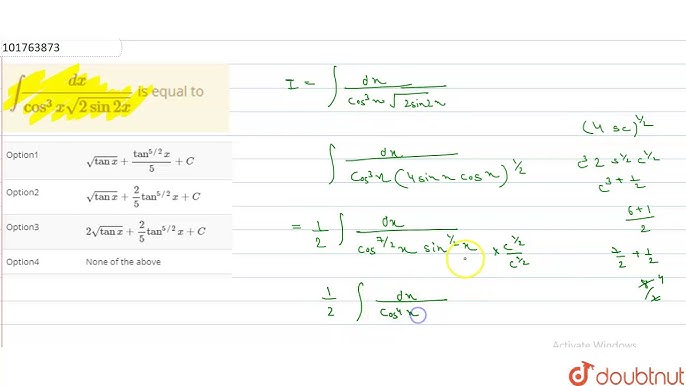 101763873
∫ dx / (cos³ x √(2 sin 2x)) is equal to
Option1 √tan x + tan^(5/2) x / 5 + C
Option2 √tan x + 2/5 tan^(5/2) x + C
Option3 2√tan x + 2/5 tan^(5/2) x + C
Option4 None of the above
I = ∫ dx / (cos³x √(2sin2x))
∫ dx / (cos³x (4 sin x cos x)^(1/2))
= 1/2 ∫ dx / (cos^(7/2) x sin^(1/2) x) × c^(1/2) / c^(1/2)
1/2 ∫ dx / (cos⁴x
(4 sc)^(1/2)
c³ 2 s^(1/2) c^(1/2)
c^(3 + 1/2)
(6+1)/2
7/2 + 1/2
8/2 4
Activate Windows
doubtnut